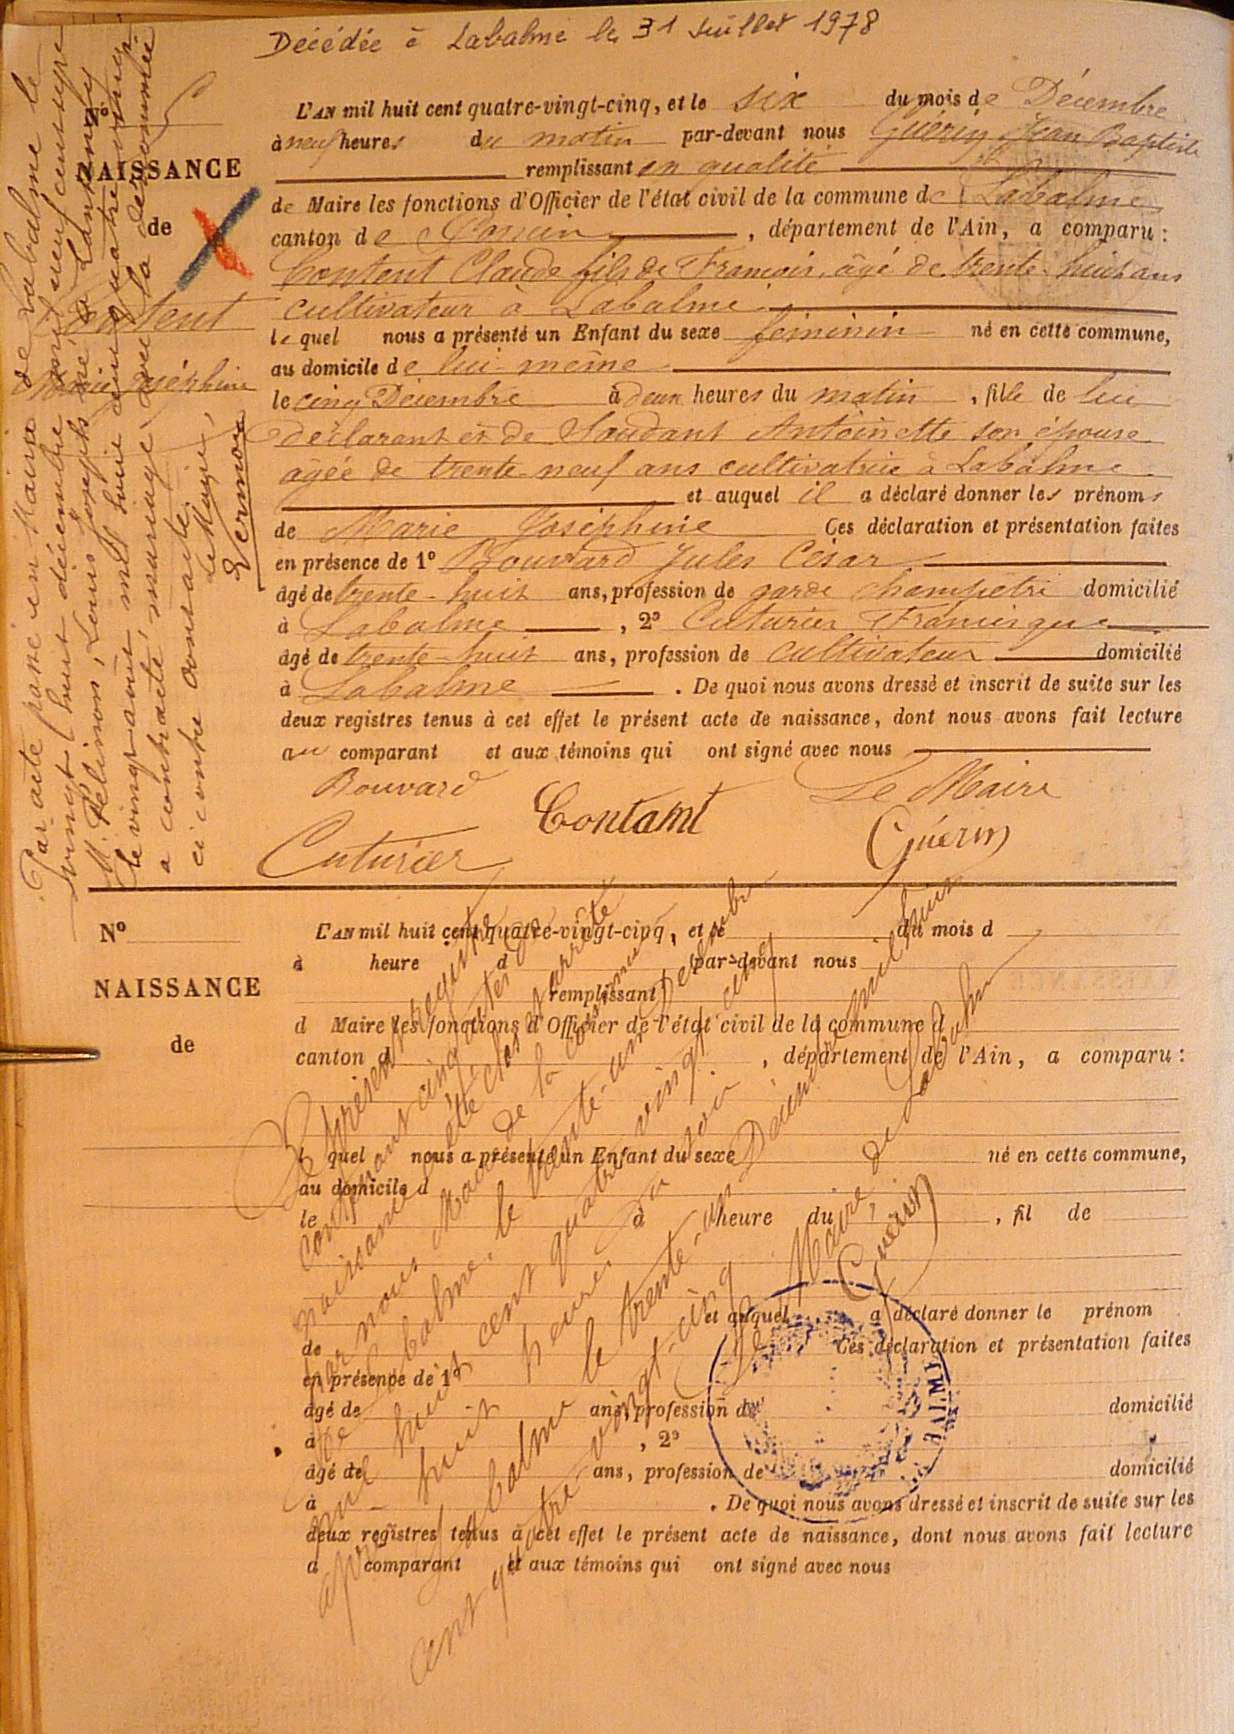 Décédée à Labalme le 31 Juillet 1978
N°
NAISSANCE
de
Content
Marie Joséphine
Par acte passé en Mairie de Labalme le
vingt huit décembre mil neuf cent
M. Pelisson, Louis Joseph né à
le vingt août mil huit cent quatre vingt
a contracté mariage avec la dénommée
ci contre
Le Maire,
L'AN mil huit cent quatre-vingt-cinq, et le six du mois de Décembre
à neuf heures du matin par-devant nous Guérin Jean Baptiste
remplissant en qualité
de Maire les fonctions d'Officier de l'état civil de la commune de Labalme
canton de Poncin, département de l'Ain, a comparu :
Content Claude fils de François, âgé de trente huit ans
cultivateur à Labalme
lequel nous a présenté un Enfant du sexe féminin né en cette commune,
au domicile de lui même
le cinq Décembre à deux heures du matin, fille de lui
déclarant et de Soudant Antoinette son épouse
agée de trente neuf ans cultivatrice à Labalme
et auquel il a déclaré donner les prénoms
de Marie Joséphine Ces déclaration et présentation faites
en présence de 1° Bouvard Jules César
âgé de trente-huit ans, profession de garde champetre domicilié
à Labalme, 2° Cuturier Francisque
âgé de trente-huit ans, profession de cultivateur domicilié
à Labalme. De quoi nous avons dressé et inscrit de suite sur les
deux registres tenus à cet effet le présent acte de naissance, dont nous avons fait lecture
au comparant et aux témoins qui ont signé avec nous
Bouvard Contamt Le Maire
Cuturier Guérin
N°
NAISSANCE
de
L'AN mil huit cent quatre-vingt-cinq, et le du mois d
à heure d par-devant nous
remplissant
d Maire les fonctions d'Officier de l'état civil de la commune d
canton d , département de l'Ain, a comparu :
l quel nous a présenté un Enfant du sexe né en cette commune,
au domicile d
le à heure du , fil de
et auquel a déclaré donner le prénom
de Ces déclaration et présentation faites
en présence de 1°
âgé de ans, profession de domicilié
à , 2°
âgé de ans, profession de domicilié
à . De quoi nous avons dressé et inscrit de suite sur les
deux registres tenus à cet effet le présent acte de naissance, dont nous avons fait lecture
a comparant et aux témoins qui ont signé avec nous
Le présent registre
comprenant cinq actes de
naissance a été clos et arrêté
par nous Maire de la commune
de Labalme, le trente-un Décembre
mil huit cent quatre vingt cinq
après huit heures du soir
Labalme le trente-un Décembre mil huit
cent quatre vingt-cinq
Le Maire de Labalme
Guérin